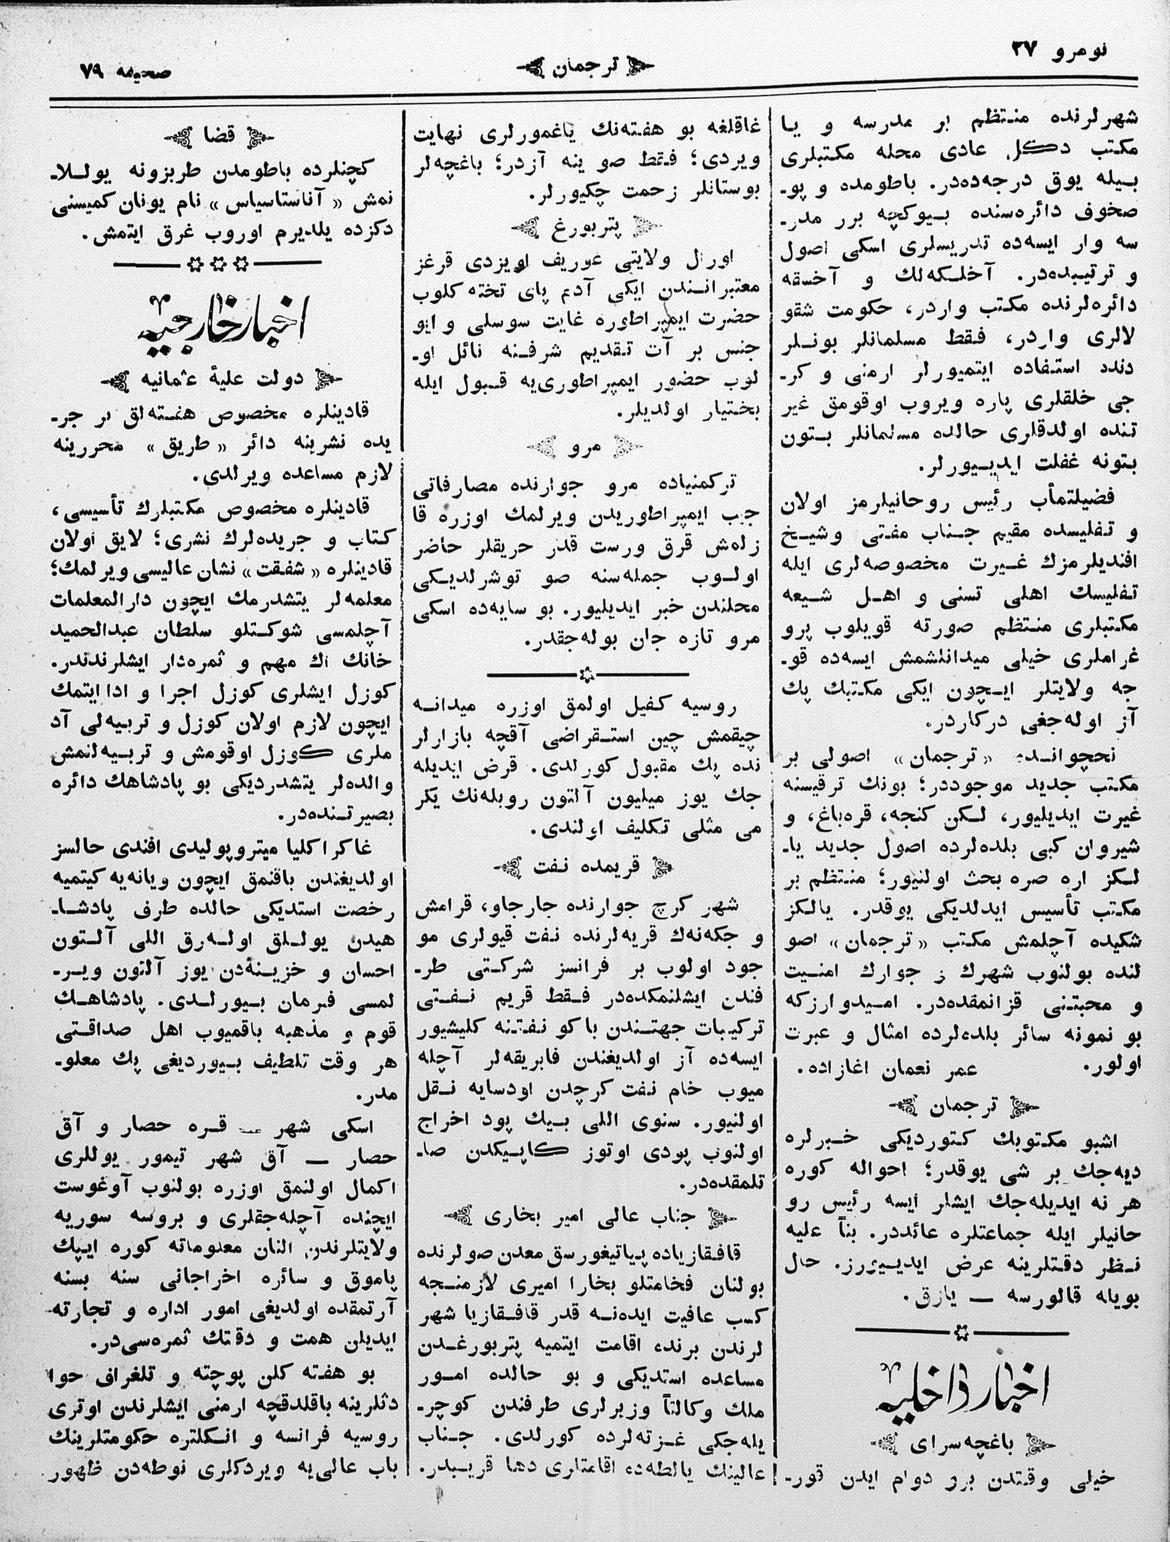 نومرو ٢٧
ترجمان
صحیفه ٧٩
شهرلرنده منتظم بر مدرسه و یا
مکتب دکل، عادی محله مکتبلری
بیله یوق درجه‌ده‌در. باطومده و پو-
صخوف دائره‌سنده بیوکچه برر مدر-
سه وار ایسه‌ده تدریسلری اسکی اصول
و ترتیبده‌در. آخلکه‌لك و آخسقه
دائره‌لرنده مکتب واردر، حکومت شقو
لالری واردر، فقط مسلمانلر بونلر
دندد استفاده ایتمیورلر ارمنی و کر-
جی خلقلری پاره ویروب اوقومق غیر
تنده اولدقلری حالده مسلمانلر بتون
بتونه غفلت ایدییورلر.
فضیلتمأب رئیس روحانیلرمز اولان
و تفلیسده مقیم جناب مفتی وشیخ
افندیلرمزك غیرت مخصوصه‌لری ایله
تفلیسك اهلی تسنی و اهل شیعه
مکتبلری منتظم صورته قویلوب پرو
غراملری خیلی میدانلشمش ایسه‌ده قو-
جه ولایتلر ایچون ایکی مکتبك پك
آز اوله‌جغی درکاردر.
نخچوانده «ترجمان» اصولی بر
مکتب جدید موجوددر؛ بونك ترقیسنه
غیرت ایدیلیور، لکن کنجه، قره‌باغ، و
شیروان کبی بلده‌لرده اصول جدید یا-
لکز اره صره بحث اولنیور؛ منتظم بر
مکتب تأسیس ایدلدیکی یوقدر. یالکز
شکیده آچلمش مکتب «ترجمان» اصو
لنده بولنوب شهرك و جوارك امنیت
و محبتنی قزانمقده‌در. امیدوارزکه
بو نمونه سائر بلده‌لرده امثال و عبرت
اولور. عمر نعمان اغازاده.
ترجمان
اشبو مکتوبك کتوردیکی خبرلره
دیه‌جك بر شی یوقدر؛ احواله کوره
هر نه ایدیله‌جك ایشلر ایسه رئیس رو
حانیلر ایله جماعتلره عائددر. بنآ علیه
نظر دقتلرینه عرض ایدییورز. حال
بویله قالورسه — یازق.
اخبار داخلیه
باغچه‌سرای
خیلی وقتدن برو دوام ایدن قور-
غاقلغه بو هفته‌نك یاغمورلری نهایت
ویردی؛ فقط صو ینه آزدر؛ باغچه‌لر
بوستانلر زحمت چکیورلر.
پتربورغ
اورال ولایتی غوریف اویزدی قرغز
معتبرانندن ایکی آدم پای تخته کلوب
حضرت ایمپراطوره غایت سوسلی و ایو
جنس بر آت تقدیم شرفنه نائل او-
لوب حضور ایمپراطوری‌یه قبول ایله
بختیار اولدیلر.
مرو
ترکمنیاده مرو جوارنده مصارفاتی
جیب ایمپراطوریدن ویرلمك اوزره قا
زلمش قرق ورست قدر حریقلر حاضر
اولوب جمله‌سنه صو توشرلدیکی
محلندن خبر ایدیلیور. بو سایه‌ده اسکی
مرو تازه جان بوله‌جقدر.
روسیه کفیل اولمق اوزره میدانه
چیقمش چین استقراضی آقچه بازارلر
نده پك مقبول کورلدی. قرض ایدیله
جك یوز میلیون آلتون روبله‌نك یکر
می مثلی تکلیف اولندی.
قریمده نفت
شهر کرچ جوارنده جارجاو، قرامش
و جکه‌نه‌ك قریه‌لرنده نفت قیولری مو
جود اولوب بر فرانسز شرکتی طر-
فندن ایشلنمکده‌در فقط قریم نفتی
ترکیبات جهتندن باکو نفتنه کلیشیور
ایسه‌ده آز اولدیغندن فابریقه‌لر آچله
میوب خام نفت کرچدن اودسایه نقل
اولنیور. سنوی اللی بیك پود اخراج
اولنوب پودی اوتوز کاپیکدن صا-
تلمقده‌در.
جناب عالی امیر بخاری
قافقازیاده پیاتیغورسق معدن صولرنده
بولنان فخامتلو بخارا امیری لازمنجه
کسب عافیت ایده‌نه قدر قافقازیا شهر
لرندن برنده اقامت ایتمیه پتربورغدن
مساعده استدیکی و بو حالده امور
ملك وکالتآ وزیرلری طرفندن کوچر-
یله‌جکی غزته‌لرده کورلدی. جناب
عالینك یالطه‌ده اقامتلری دها قریبدر.
قضا
کچنلرده باطومدن طربزونه یوللا-
نمش «آناستاسیاس» نام یونان کمیسنی
دکزده یلدیرم اوروب غرق ایتمش.
اخبار خارجیه
دولت علیهٔ عثمانیه
قادینلره مخصوص هفته‌لق بر جر-
یده نشرینه دائر «طریق» محررینه
لازم مساعده ویرلدی.
قادینلره مخصوص مکتبلرك تأسیسی،
کتاب و جریده‌لرك نشری؛ لایق اولان
قادینلره «شفقت» نشان عالیسی ویرلمك؛
معلمه‌لر یتشدرمك ایچون دارالمعلمات
آچلمسی شوکتلو سلطان عبدالحمید
خانك اك مهم و ثمره‌دار ایشلرندندر.
کوزل ایشلری کوزل اجرا و ادا ایتمك
ایچون لازم اولان کوزل و تربیه‌لی آد
ملری کوزل اوقومش و تربیه‌لنمش
والده‌لر یتشدردیکی بو پادشاهك دائره
بصیرتنده‌در.
غاکراکلیا میتروپولیدی افندی حالسز
اولدیغندن باقنمق ایچون ویانه‌یه کیتمیه
رخصت استدیکی حالده طرف پادشا-
هیدن یوللق اوله‌رق اللی آلتون
احسان و خزینه‌دن یوز آلتون ویر-
لمسی فرمان بیورلدی. پادشاهك
قوم و مذهبه باقمیوب اهل صداقتی
هر وقت تلطیف بیوردیغی پك معلو-
مدر.
اسکی شهر — قره حصار و آق
حصار — آق شهر تیمور یوللری
اکمال اولنمق اوزره بولنوب آوغوست
ایچنده آچله‌جقلری و بروسه سوریه
ولایتلرندن النان معلوماته کوره ایپك
پاموق و سائره اخراجاتی سنه بسنه
آرتمقده اولدیغی امور اداره و تجارته
ایدیلن همت و دقتك ثمره‌سی‌در.
بو هفته کلن پوچته و تلغراف حوا
دثلرینه باقلدقچه ارمنی ایشلرندن اوتری
روسیه فرانسه و انکلتره حکومتلرینك
باب عالی‌یه ویردکلری نوطه‌دن ظهور